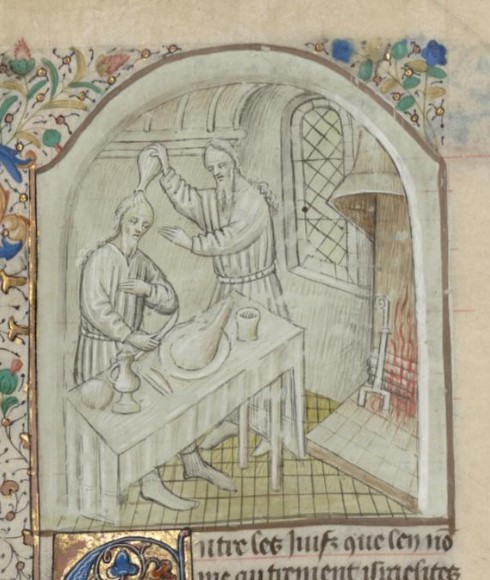 Entre les Juifz que len no
me autrement israelites